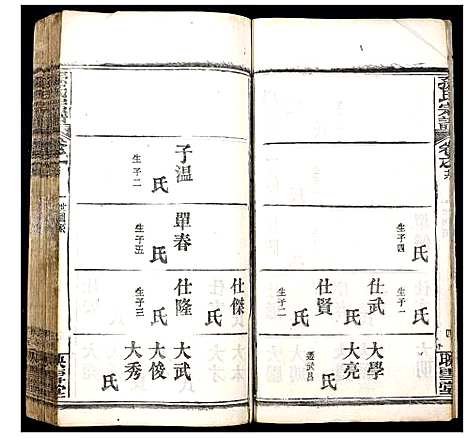 孫氏宗譜
氏
生子四
仕武
氏
生子一
仕賢
氏
生子二
大學
大亮
氏
遷武昌
子溫
氏
生子二
單春
氏
生子五
仕傑
氏
仕隆
氏
生子三
大武
氏
大俊
大秀
氏